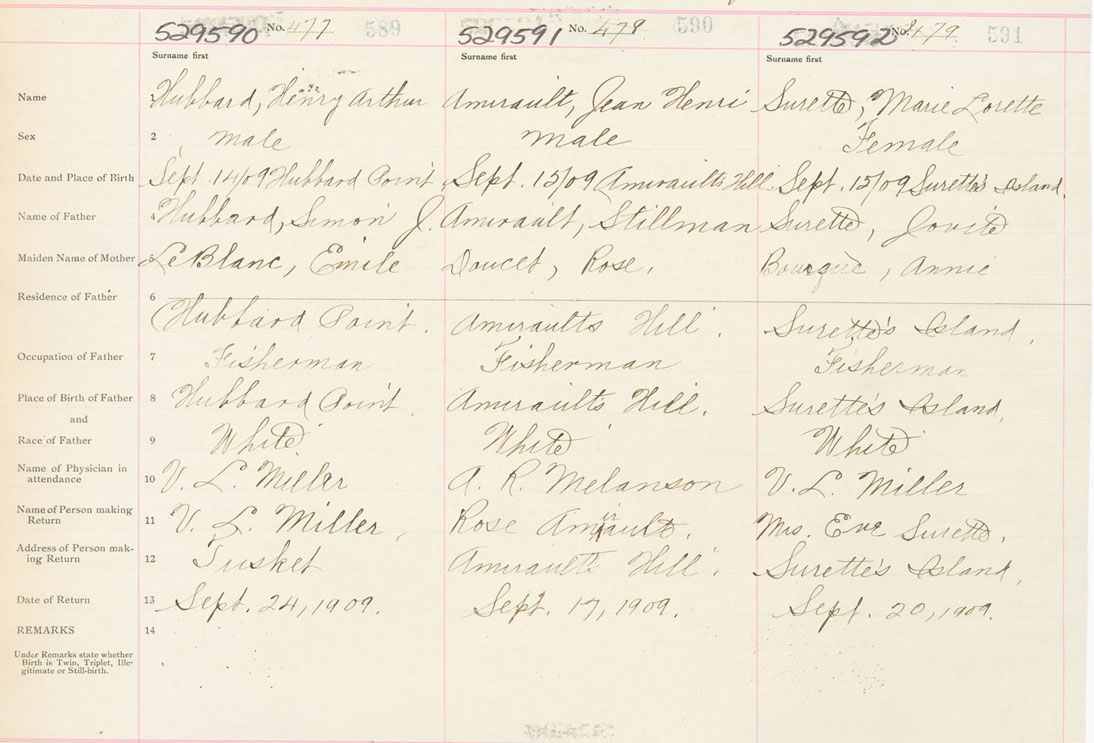 529590 No. 477 589 529591 No. 478 590 529592 No. 479 591
Surname first Surname first Surname first
Name 1 Hubbard, Henry Arthur Amirault, Jean Henri Surette, Marie Lorette
Sex 2 male male Female
Date and Place of Birth Sept. 14/09 Hubbard Point, Sept. 15/09 Amiraults Hill Sept. 15/09 Surette's Island,
Name of Father 4 Hubbard, Simon J. Amirault, Stillman Surette, Jovite
Maiden Name of Mother 5 LeBlanc, Emile Doucet, Rose, Bourque, Annie
Residence of Father 6
Hubbard Point. Amiraults Hill. Surette's Island,
Occupation of Father 7 Fisherman Fisherman Fisherman
Place of Birth of Father 8 Hubbard Point. Amiraults Hill. Surette's Island,
and
Race of Father 9 White White White
Name of Physician in
attendance 10 V. L. Miller A. R. Melanson V. L. Miller
Name of Person making
Return 11 V. L. Miller, Rose Amirault. Mrs. Eve Surette.
Address of Person mak-
ing Return 12 Tusket Amiraults Hill. Surette's Island,
Date of Return 13 Sept. 24, 1909. Sept. 17, 1909. Sept. 20, 1909.
REMARKS 14
Under Remarks state whether
Birth is Twin, Triplet, Ille-
gitimate or Still-birth.